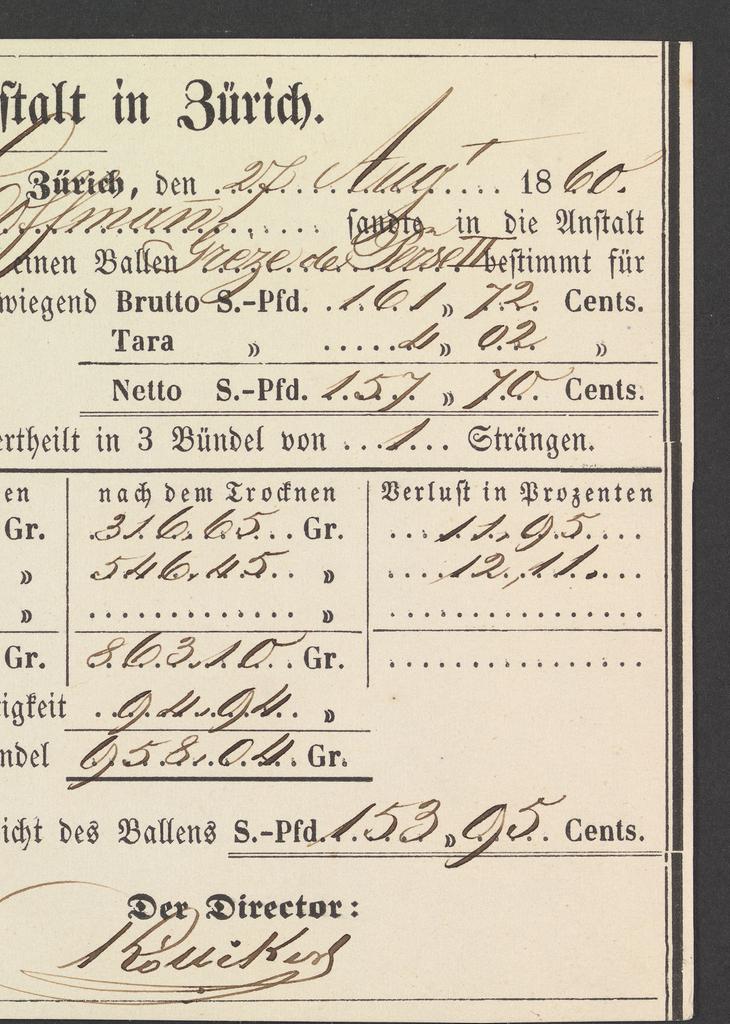 stalt in Zürich.
Zürich, den 27. Augt 1860.
offmann sandte in die Anstalt
einen Ballen Greze de Perse II bestimmt für
wiegend Brutto S.-Pfd. 161 „ 72. Cents.
Tara „ 4 „ 02. „
Netto S.-Pfd. 157. „ 70. Cents.
ertheilt in 3 Bündel von 1 Strängen.
en nach dem Trocknen Verlust in Prozenten
Gr. 316.65. Gr. 11,95
„ 546.45. „ 12,11.
„ „
Gr. 863.10. Gr.
igkeit 94.94. „
ndel 958.04. Gr.
icht des Ballens S.-Pfd. 153 „ 95. Cents.
Der Director: